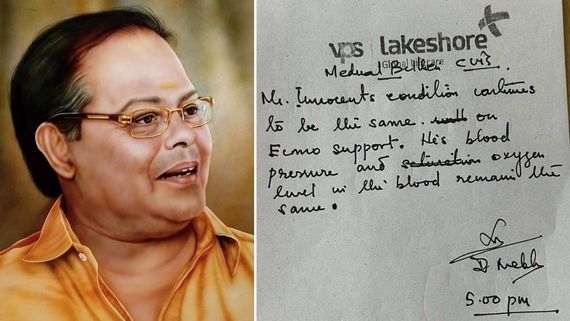 vps Lakeshore
Global Lifecare
Medical Bulletin
Mr. Innocents condition continues
to be the same. on
Ecmo support. His blood
pressure and saturation oxygen
level in the blood remain the
same.
5.00 pm